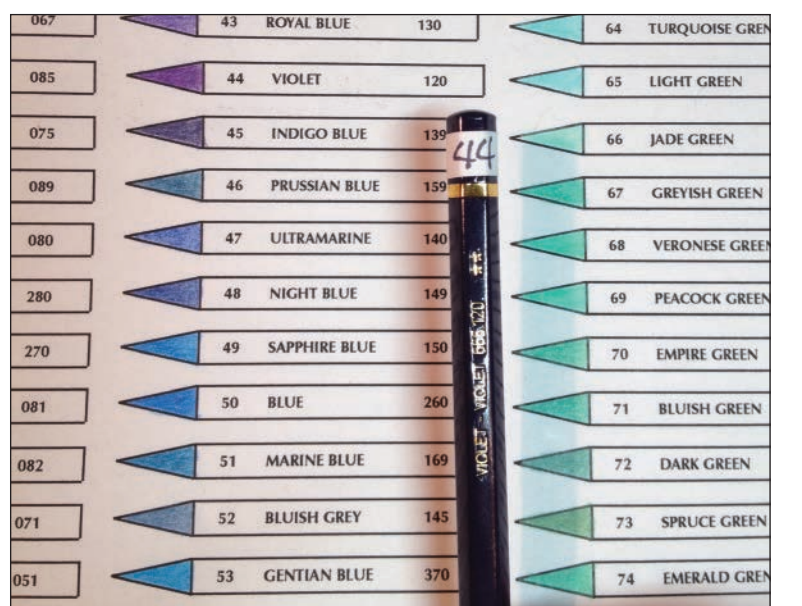 067
085
075
089
080
280
270
081
082
071
051
43 ROYAL BLUE 130
44 VIOLET 120
45 INDIGO BLUE 139
46 PRUSSIAN BLUE 159
47 ULTRAMARINE 140
48 NIGHT BLUE 149
49 SAPPHIRE BLUE 150
50 BLUE 260
51 MARINE BLUE 169
52 BLUISH GREY 145
53 GENTIAN BLUE 370
44
VIOLET - VIOLET 666.120 **
64 TURQUOISE GREN
65 LIGHT GREEN
66 JADE GREEN
67 GREYISH GREEN
68 VERONESE GREEN
69 PEACOCK GREEN
70 EMPIRE GREEN
71 BLUISH GREEN
72 DARK GREEN
73 SPRUCE GREEN
74 EMERALD GREN